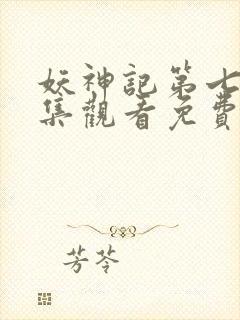 妖神記第七
集觀看免費
芳苓